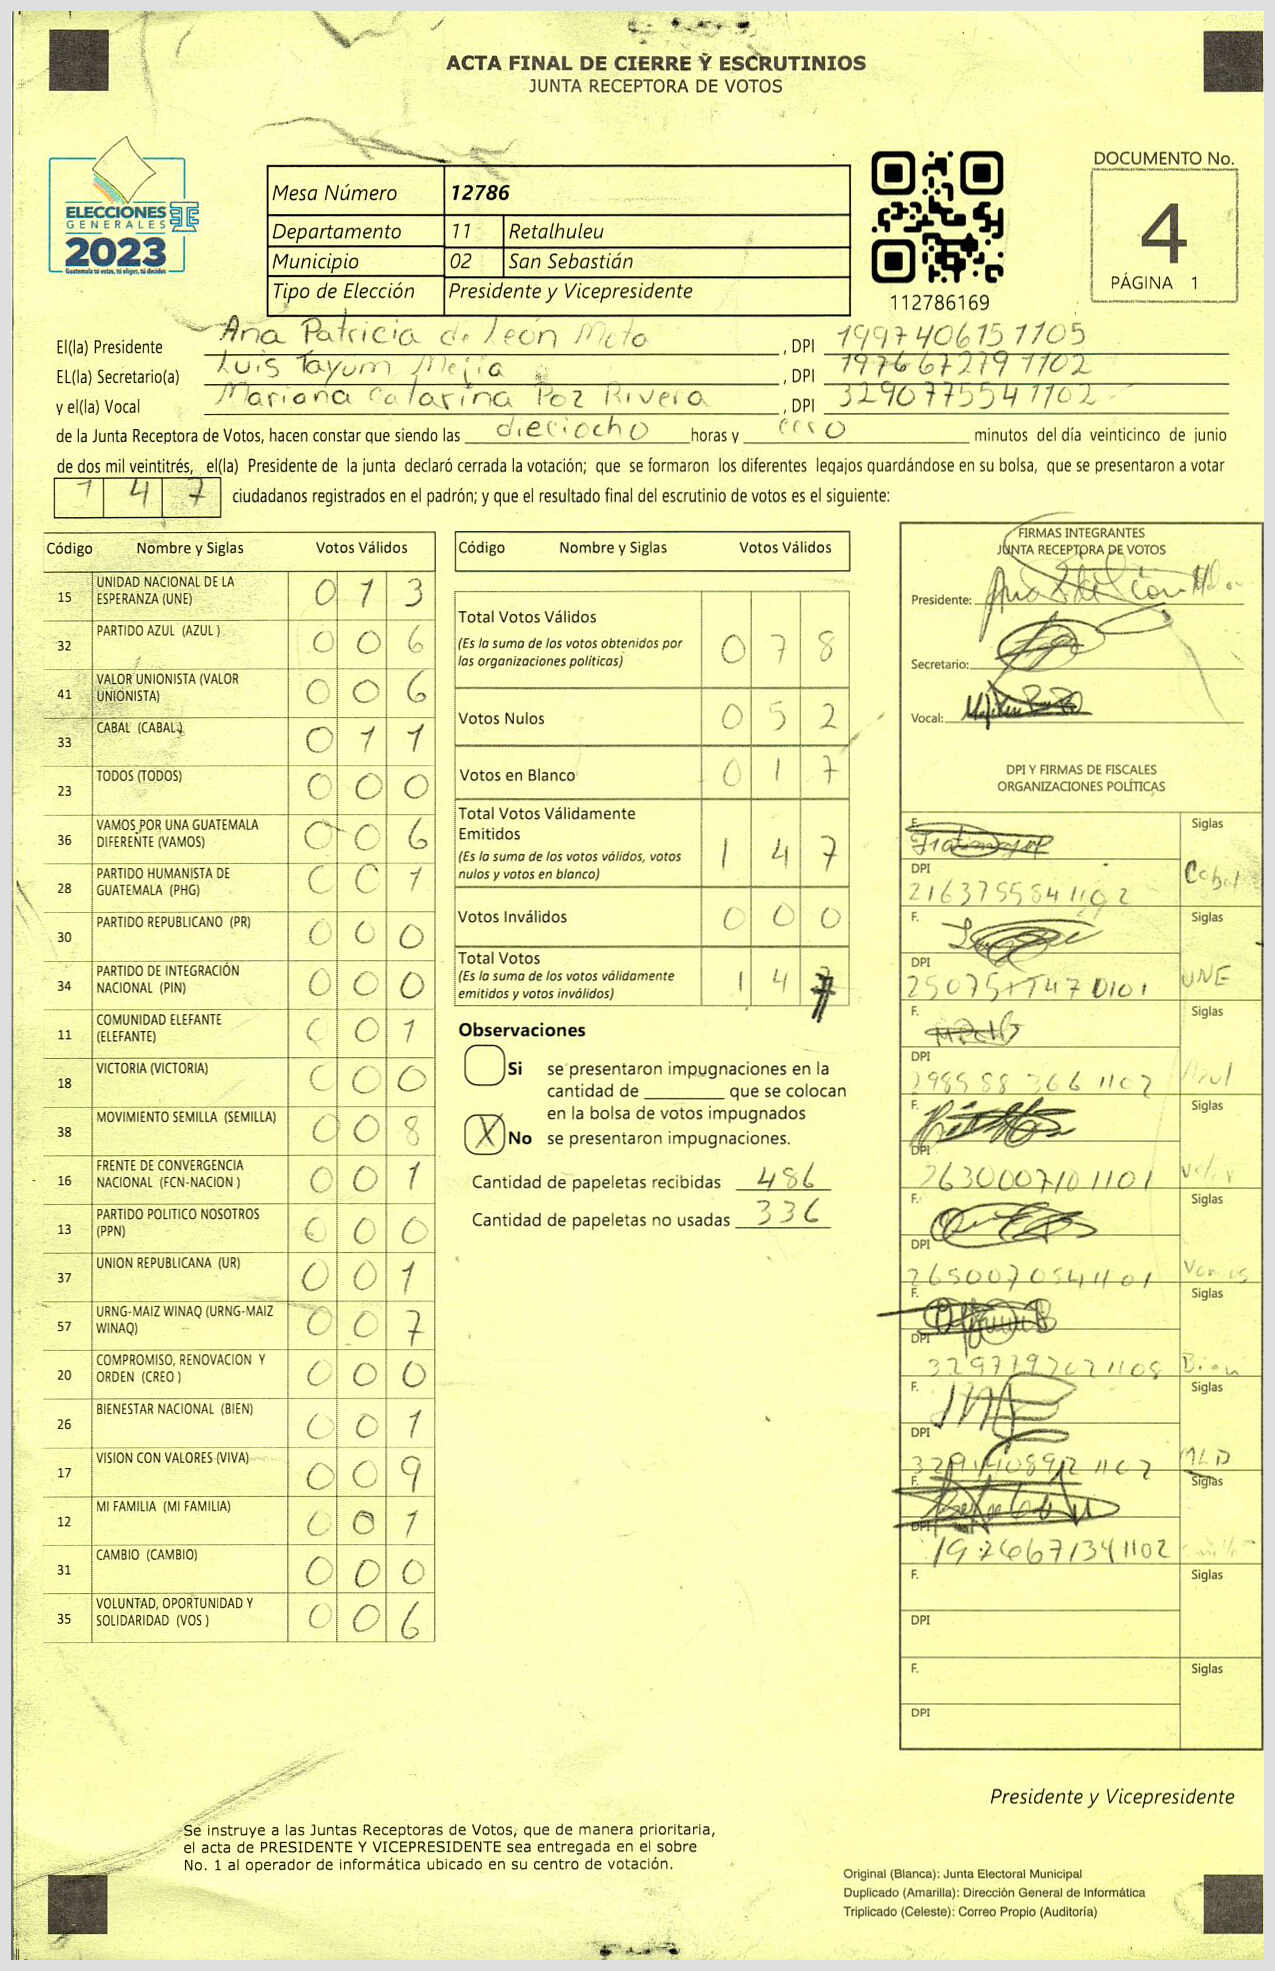 ACTA FINAL DE CIERRE Y ESCRUTINIOS
JUNTA RECEPTORA DE VOTOS
ELECCIONES
GENERALES
2023
Guatemala tú votas, tú eliges, tú decides
Mesa Número 12786
Departamento 11 Retalhuleu
Municipio 02 San Sebastián
Tipo de Elección Presidente y Vicepresidente
112786169
DOCUMENTO No.
4
PÁGINA 1
El(la) Presidente Ana Patricia de León Mota, DPI 1997406151105
EL(la) Secretario(a) Luis Tayum Mejía, DPI 1976672791102
y el(la) Vocal Mariana Catarina Poz Rivera, DPI 3290775541102
de la Junta Receptora de Votos, hacen constar que siendo las dieciocho horas y cero minutos del día veinticinco de junio
de dos mil veintitrés, el(la) Presidente de la junta declaró cerrada la votación; que se formaron los diferentes legajos guardándose en su bolsa, que se presentaron a votar
147 ciudadanos registrados en el padrón; y que el resultado final del escrutinio de votos es el siguiente:
Código Nombre y Siglas Votos Válidos
15 UNIDAD NACIONAL DE LA ESPERANZA (UNE) 013
32 PARTIDO AZUL (AZUL ) 006
41 VALOR UNIONISTA (VALOR UNIONISTA) 006
33 CABAL (CABAL) 011
23 TODOS (TODOS) 000
36 VAMOS POR UNA GUATEMALA DIFERENTE (VAMOS) 006
28 PARTIDO HUMANISTA DE GUATEMALA (PHG) 001
30 PARTIDO REPUBLICANO (PR) 000
34 PARTIDO DE INTEGRACIÓN NACIONAL (PIN) 000
11 COMUNIDAD ELEFANTE (ELEFANTE) 001
18 VICTORIA (VICTORIA) 000
38 MOVIMIENTO SEMILLA (SEMILLA) 008
16 FRENTE DE CONVERGENCIA NACIONAL (FCN-NACION ) 001
13 PARTIDO POLITICO NOSOTROS (PPN) 000
37 UNION REPUBLICANA (UR) 001
57 URNG-MAIZ WINAQ (URNG-MAIZ WINAQ) 007
20 COMPROMISO, RENOVACION Y ORDEN (CREO ) 000
26 BIENESTAR NACIONAL (BIEN) 001
17 VISION CON VALORES (VIVA) 009
12 MI FAMILIA (MI FAMILIA) 001
31 CAMBIO (CAMBIO) 000
35 VOLUNTAD, OPORTUNIDAD Y SOLIDARIDAD (VOS ) 006
Código Nombre y Siglas Votos Válidos
Total Votos Válidos 078
(Es la suma de los votos obtenidos por
las organizaciones políticas)
Votos Nulos 052
Votos en Blanco 017
Total Votos Válidamente
Emitidos 147
(Es la suma de los votos válidos, votos
nulos y votos en blanco)
Votos Inválidos 000
Total Votos 147
(Es la suma de los votos válidamente
emitidos y votos inválidos)
Observaciones
Si se presentaron impugnaciones en la
cantidad de ________ que se colocan
en la bolsa de votos impugnados
X No se presentaron impugnaciones.
Cantidad de papeletas recibidas 486
Cantidad de papeletas no usadas 336
FIRMAS INTEGRANTES
JUNTA RECEPTORA DE VOTOS
Presidente:
Secretario:
Vocal:
DPI Y FIRMAS DE FISCALES
ORGANIZACIONES POLÍTICAS
F. Siglas
DPI Cabal
F. Siglas
DPI UNE
F. Siglas
DPI Azul
F. Siglas
DPI 2630007101101 Valor
F. Siglas
DPI 2650070541101 Vamos
F. Siglas
DPI Bien
F. Siglas
DPI MLD
F. Siglas
DPI 1976671341102
F. Siglas
DPI
F. Siglas
DPI
Presidente y Vicepresidente
Se instruye a las Juntas Receptoras de Votos, que de manera prioritaria,
el acta de PRESIDENTE Y VICEPRESIDENTE sea entregada en el sobre
No. 1 al operador de informática ubicado en su centro de votación.
Original (Blanca): Junta Electoral Municipal
Duplicado (Amarilla): Dirección General de Informática
Triplicado (Celeste): Correo Propio (Auditoría)